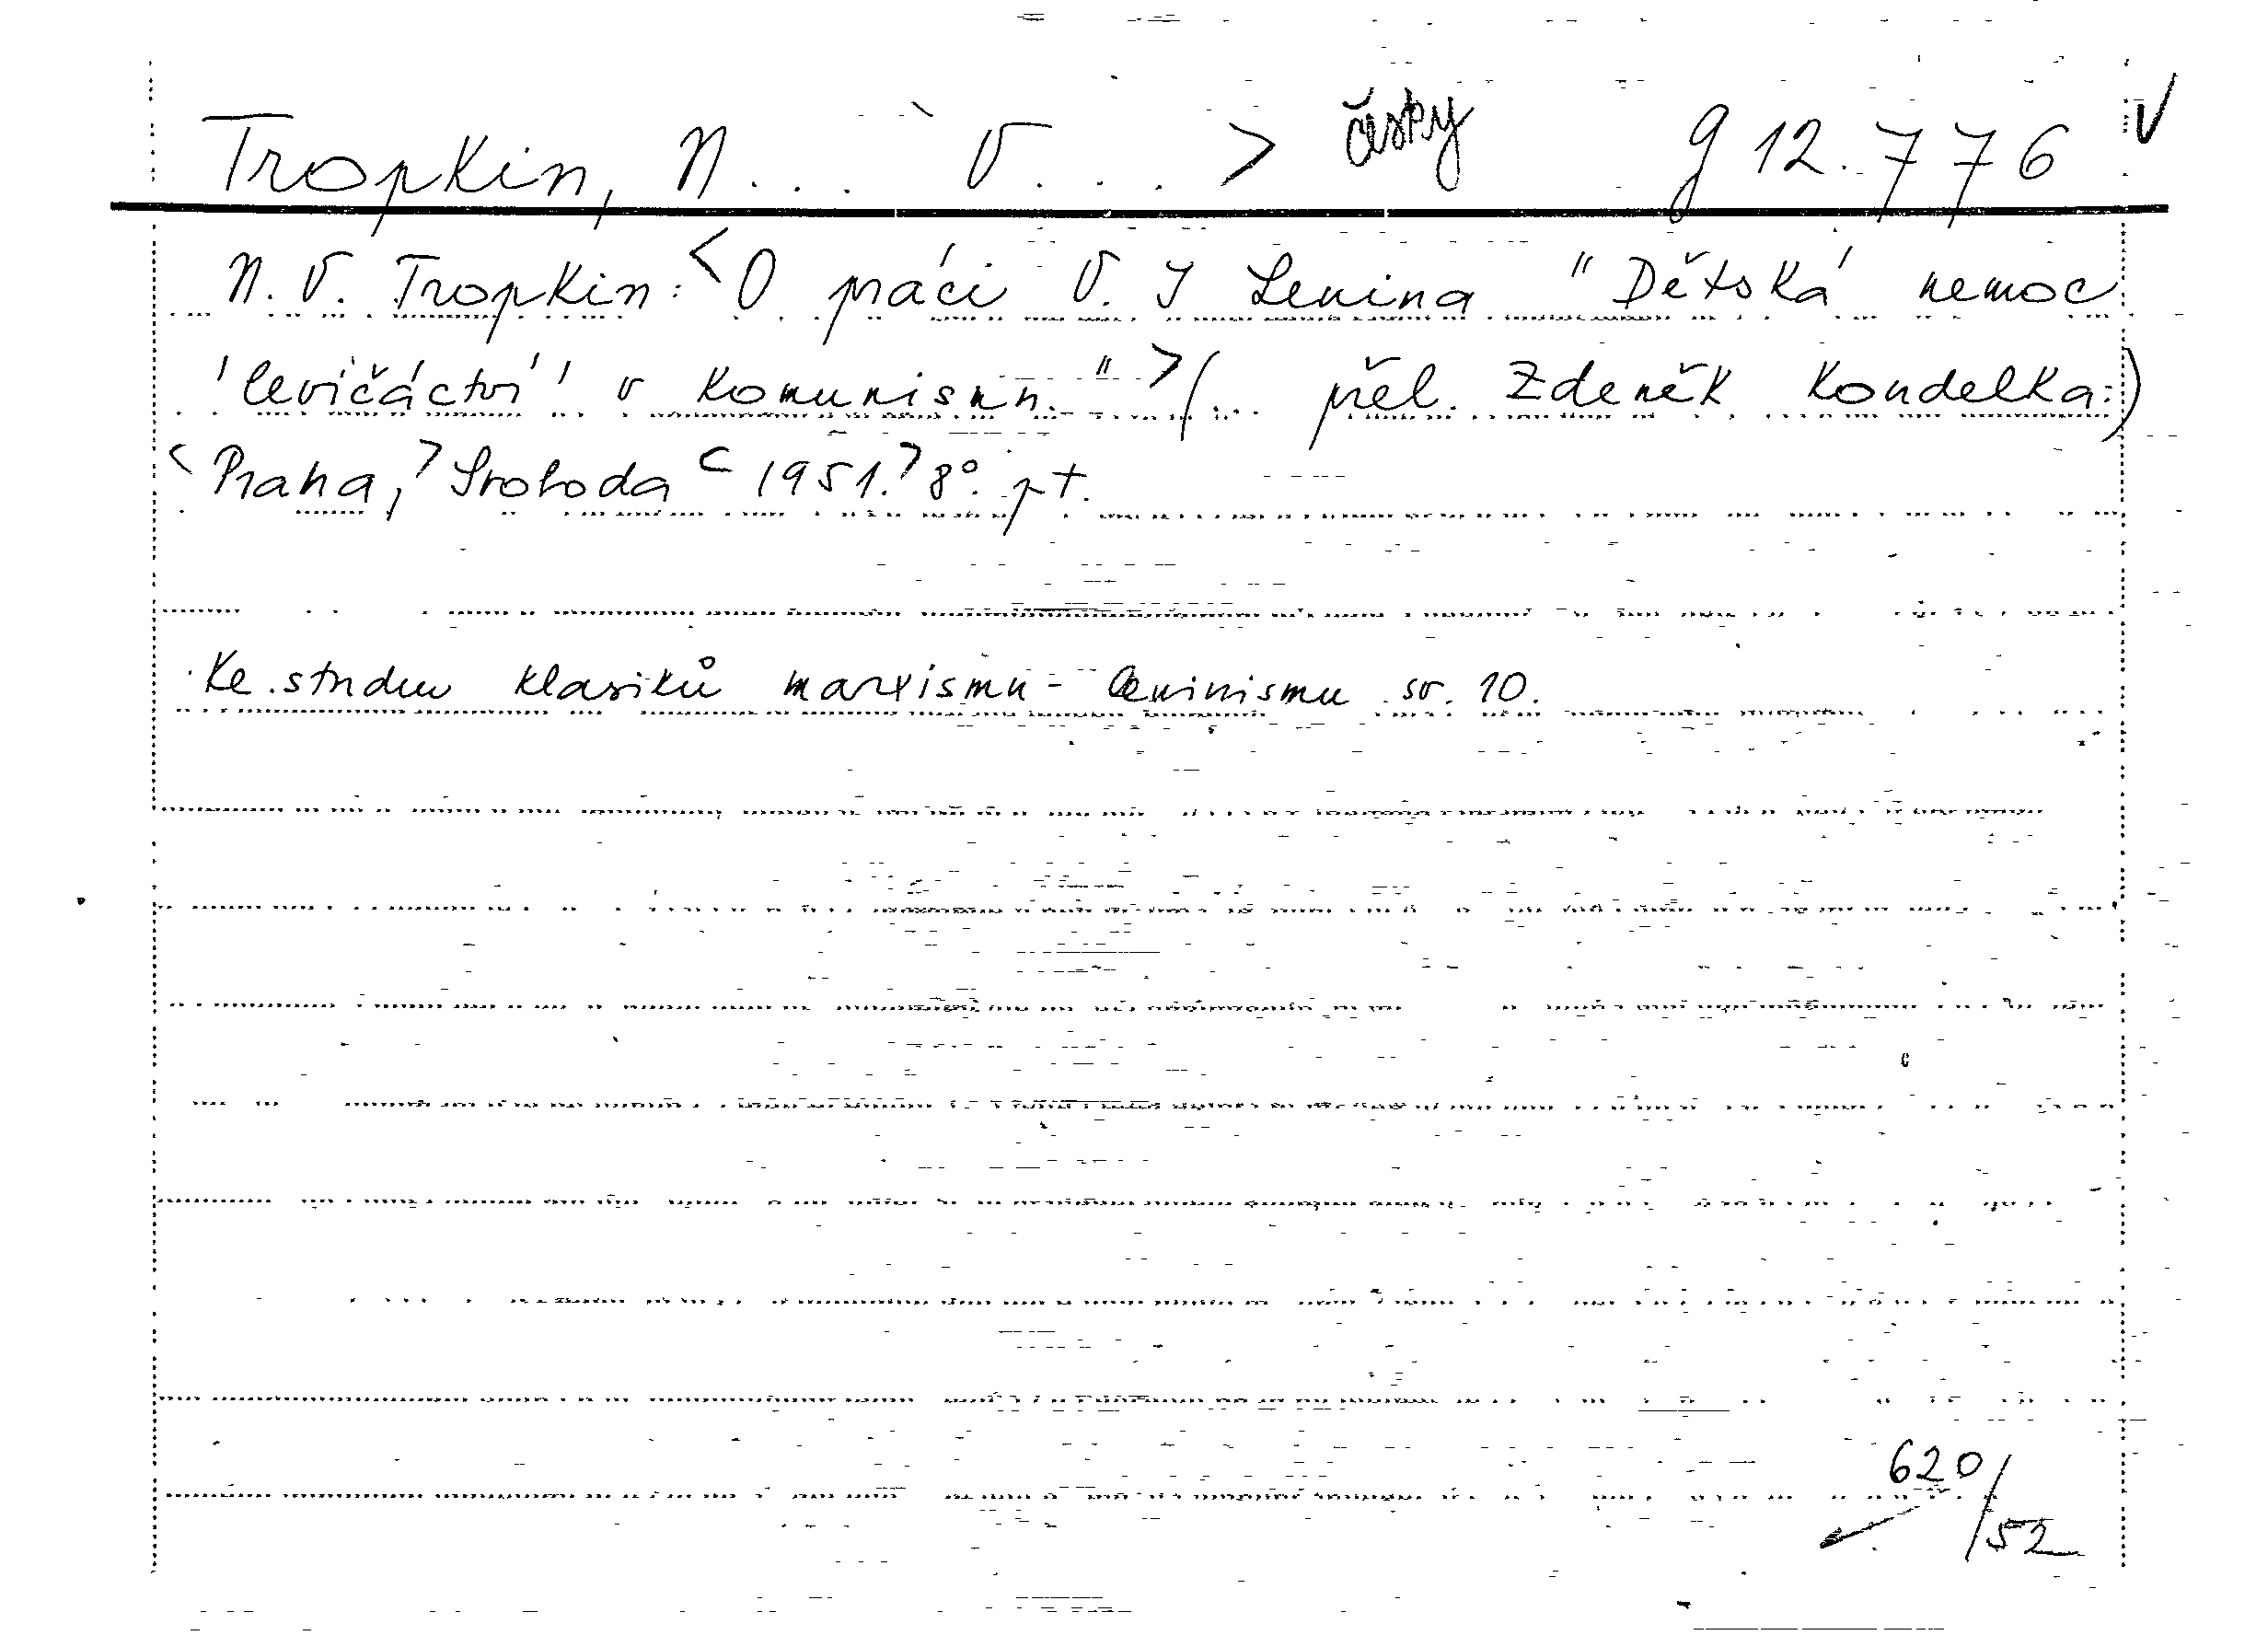 Tropkin, N... V... > česky g 12.776 V
N. V. Tropkin: <O práci V. I Lenina "Dětská nemoc
'levičáctví' v komunismu." >(... přel. Zdeněk Kondelka:)
<Praha,> Svoboda <1951.> 8°. pt.
Ke studiu klasiků marxismu-leninismu sv. 10.
620/52